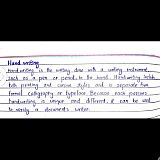 Hand writing
Handwriting is the writing done with a writing instrument,
such as a pen or pencil, in the hand. Handwriting include
both printing and cursive styles and is separate from
formal calligraphy or typeface. Because each persons
handwriting is unique and different, it can be used
to verify a documents writer.